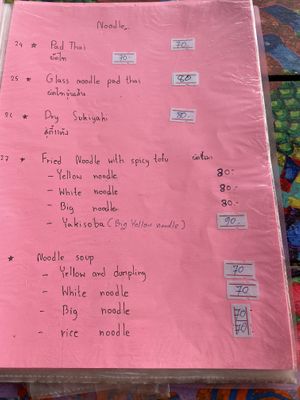 Noodle.
24 * Pad Thai 70.-
ผัดไท 70.-
25 * Glass noodle pad thai 80
ผัดไทวุ้นเส้น
26 * Dry Sukiyaki 80.-
สุกี้แห้ง
27 * Fried Noodle with spicy tofu
- Yellow noodle 80.-
- White noodle 80.-
- Big noodle 80.-
- Yakisoba (Big Yellow noodle) 90.-
* Noodle soup
- Yellow and dumpling 70
- White noodle 70
- Big noodle 70
- rice noodle 70